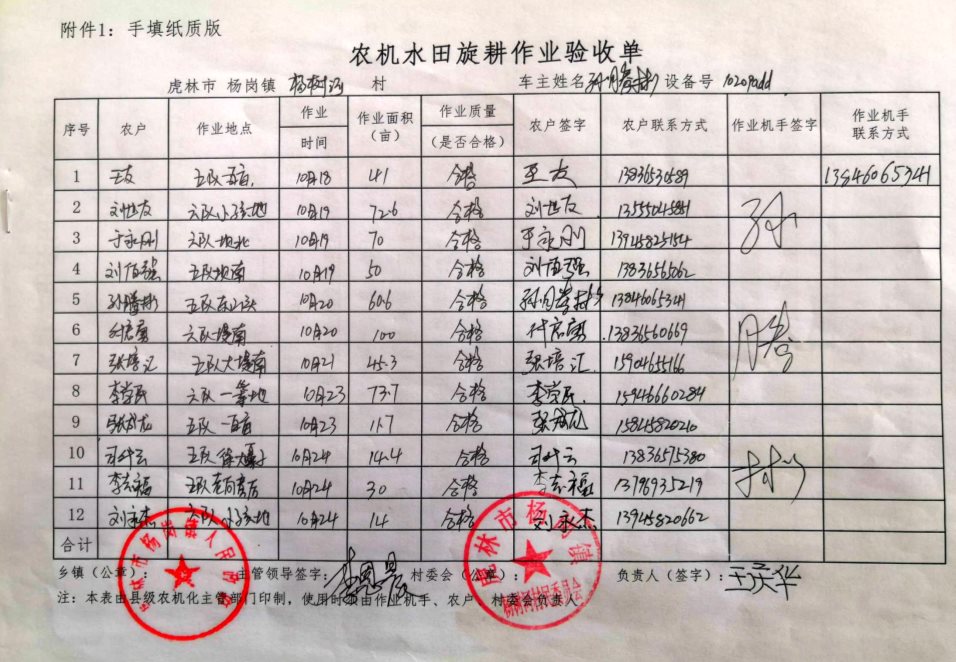 附件1：手填纸质版
农机水田旋耕作业验收单
虎林市 杨岗镇 杨树河 村 车主姓名 孙腾彬 设备号
序号 农户 作业地点 作业时间 作业面积（亩） 作业质量（是否合格） 农户签字 农户联系方式 作业机手签字 作业机手联系方式
1 王友 五队 10月18 41 合格 王友 13836530589 13846065341
2 刘世友 六队小孩地 10月19 72.6 合格 刘世友 13555045841
3 于永刚 六队地北 10月19 70 合格 于永刚 13945825154
4 刘佰强 五队地南 10月19 50 合格 刘佰强 13836565062
5 孙腾彬 五队东山头 10月20 60.6 合格 孙腾彬 13846065341
6 付启勇 六队堤南 10月20 100 合格 付启勇 13836560669
7 张培汇 五队大堤南 10月21 45.3 合格 张培汇 15904655166
8 李学民 六队一等地 10月23 73.7 合格 李学民 15946660284
9 五队 10月23 11.7 合格 15845820210
10 司叶云 五队 10月24 14.4 合格 司叶云 13836575380
11 李志福 10月24 30 合格 李志福 13796935219
12 刘永杰 六队小孩地 10月24 14 合格 刘永杰 13945820662
合计
孙腾彬
乡镇（公章）： 主管领导签字： 村委会（公章）： 负责人（签字）：王庆华
注：本表由县级农机化主管部门印制，使用时须由作业机手、农户、村委会负责人
虎林市杨岗镇人民政府
虎林市杨岗镇
杨树河村村民委员会